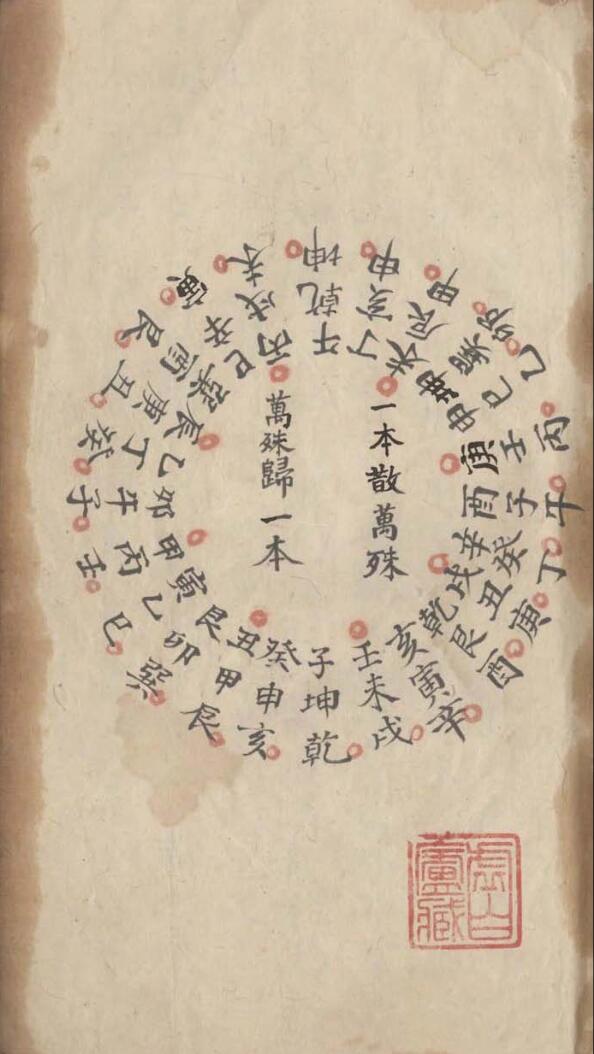 一本散萬殊
萬殊歸一本
壬子癸丑艮寅甲卯乙辰巽巳丙午丁未坤申庚酉辛戌乾亥
未坤申甲卯乙丙午丁庚酉辛戌乾亥辰巽巳壬子癸丑艮寅
戌乾亥辰巽巳壬子癸丑艮寅未坤申甲卯乙丙午丁庚酉辛
虛白廬藏